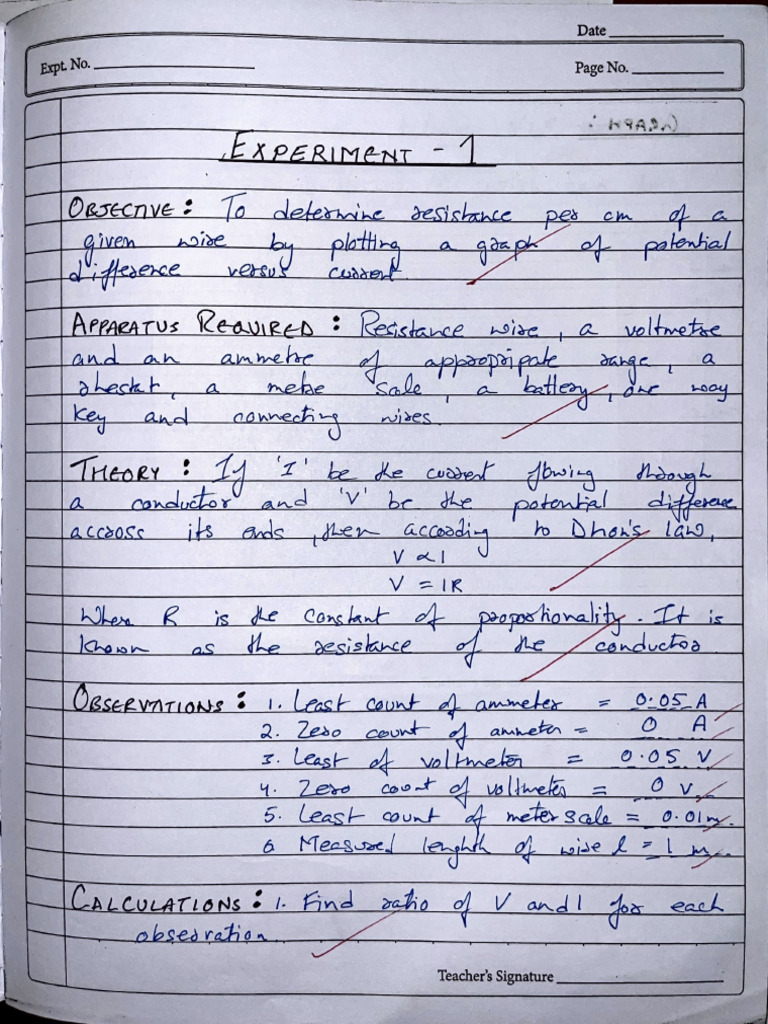 Date
Expt. No.
Page No.
GRAPH :
EXPERIMENT - 1
OBJECTIVE : To determine resistance per cm of a
given wire by plotting a graph of potential
difference versus current.
APPARATUS REQUIRED : Resistance wire, a voltmetre
and an ammetre of appropripate range, a
rhestat, a metre scale, a battery, one way
key and connecting wires.
THEORY : If 'I' be the current flowing through
a conductor and 'V' be the potential difference
accross its ends, then according to Dhom's law,
V ∝ I
V = IR
Where R is the constant of proportionality. It is
known as the resistance of the conductor
OBSERVATIONS : 1. Least count of ammeter = 0.05 A
2. Zero count of ammeter = 0 A
3. Least of voltmeter = 0.05 V
4. Zero count of voltmeter = 0 V
5. Least count of meter scale = 0.01m.
6 Measured lenghth of wire l = 1 m
CALCULATIONS : 1. Find ratio of V and I for each
obseration.
Teacher's Signature